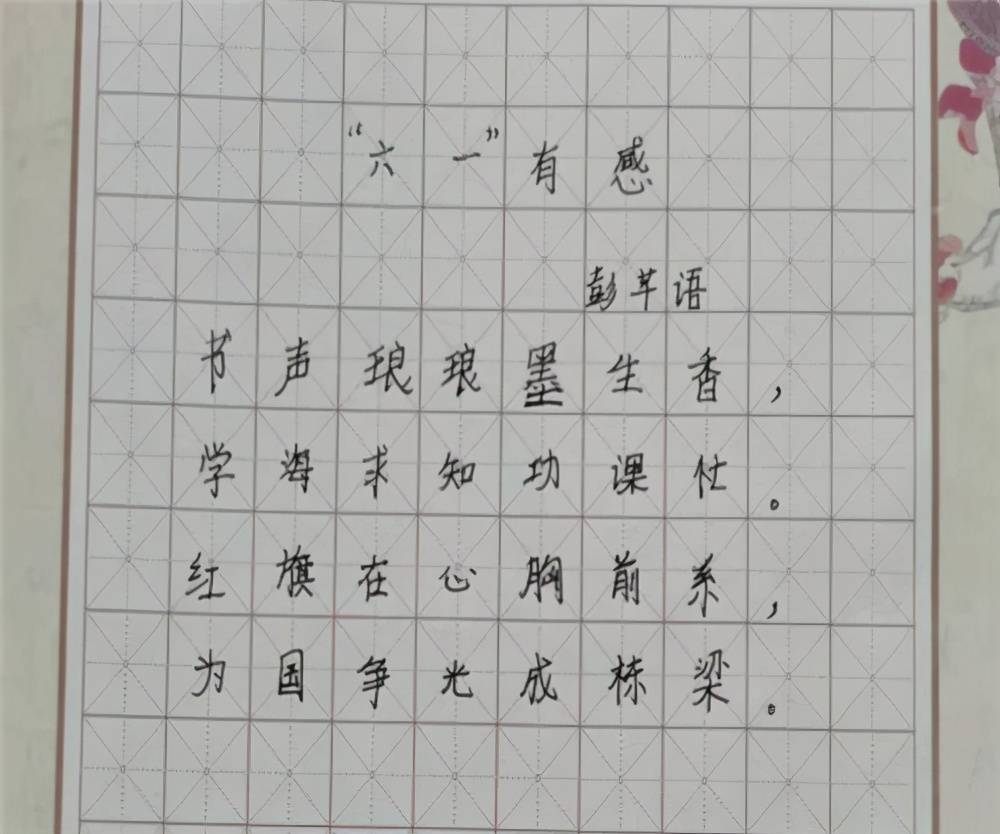 “六一”有感
彭芊语
书声琅琅墨生香，
学海求知功课忙。
红旗在心胸前系，
为国争光成栋梁。